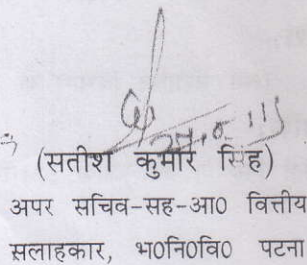 (सतीश कुमार सिंह)
अपर सचिव-सह-आ0 वित्तीय
सलाहकार, भ0नि0वि0 पटना